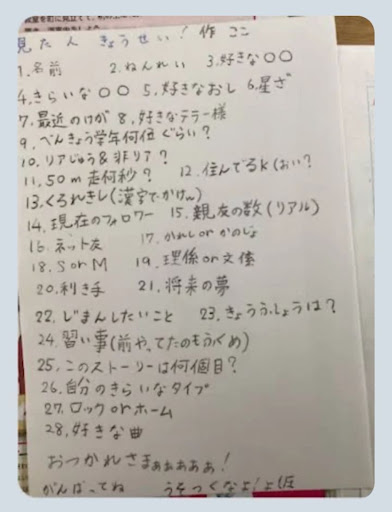 見た人 きょうせい! 作 ここ
1.名前 2.ねんれい 3.好きな○○
4.きらいな○○ 5.好きなおし 6.星ざ
7.最近のけが 8.好きなテラー様
9.べんきょう学年何位ぐらい?
10.リアじゅう&非リア?
11.50m走何秒? 12.住んでるK
13.くろれきし(漢字でかけw)
14.現在のフォロワー 15.親友の数(リアル)
16.ネット友 17.かれしorかのじょ
18.SorM 19.理係or文係
20.利き手 21.将来の夢
22.じまんしたいこと 23.きょうふしょうは?
24.習い事(前や、てたのもふくめ)
25.このストーリーは何個目?
26.自分のきらいなタイプ
27.ロックorホーム
28.好きな曲
おつかれさまぁぁぁぁぁ!
がんばってね うそつくなよ!